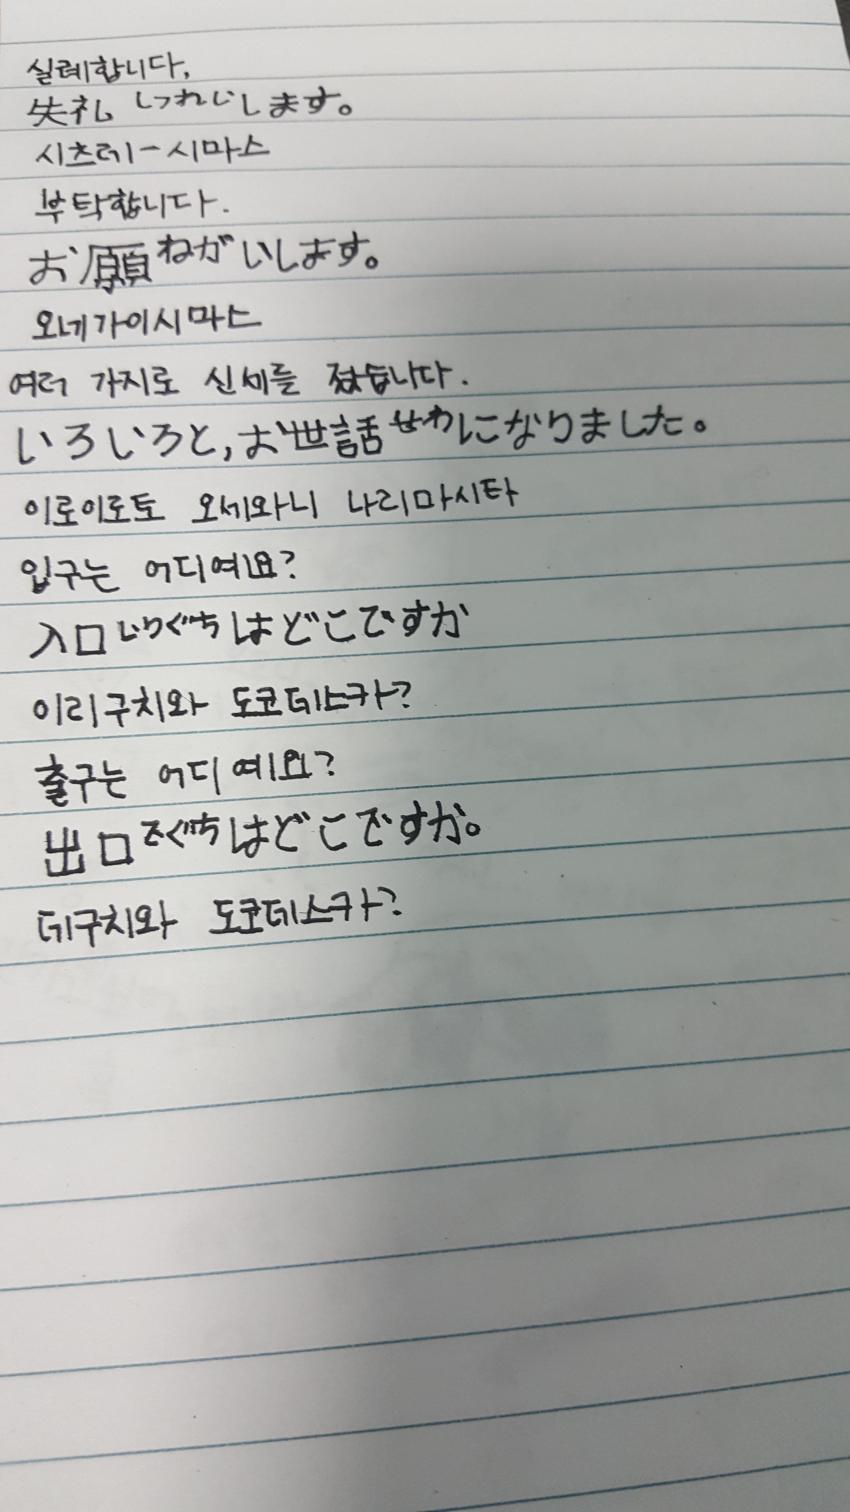 실례합니다,
失礼 しつれいします。
시츠레ー시마스
부탁합니다.
お願ねがいします。
오네가이시마스
여러 가지로 신세를 졌습니다.
いろいろと,お世話せわになりました。
이로이로토 오세와니 나리마시타
입구는 어디예요?
入口いりぐちはどこですか
이리구치와 도코데스카?
출구는 어디예요?
出口でぐちはどこですか。
데구치와 도코데스카?